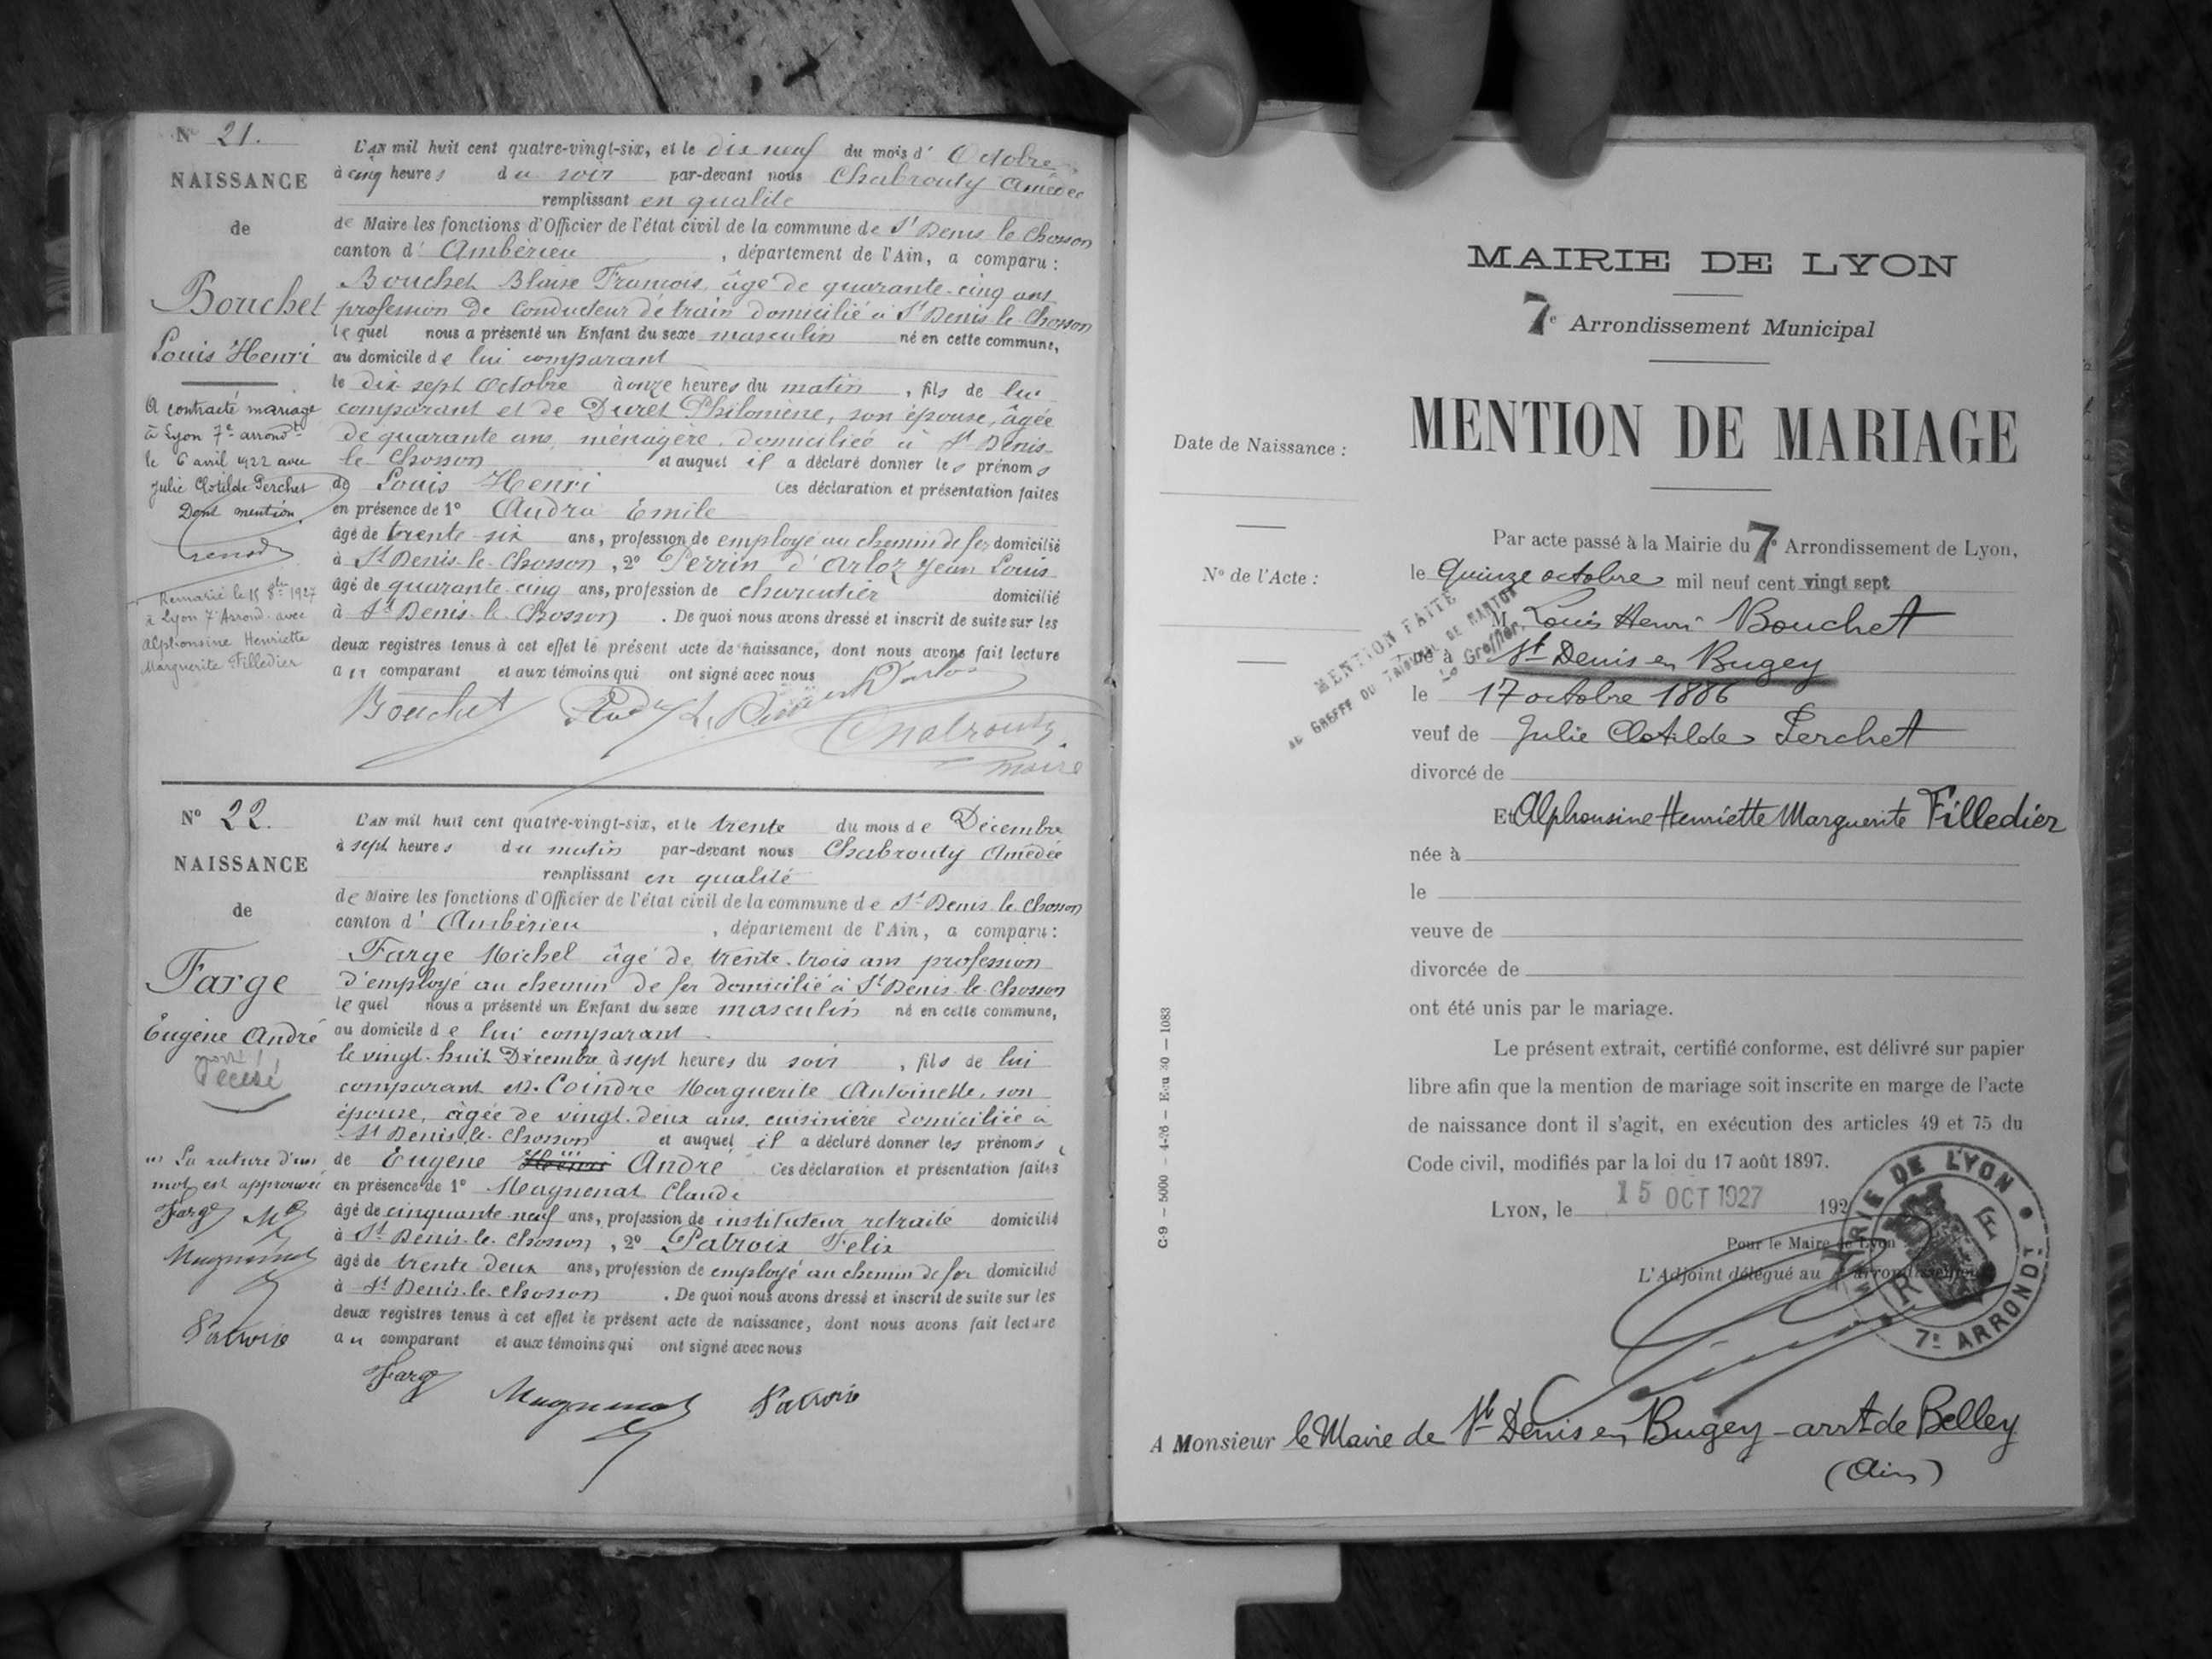 N° 21.
NAISSANCE
de
Bouchet
Louis Henri
A contracté mariage
à Lyon 7e arrondt
le 6 avril 1922 avec
Julie Clotilde Perchet
Dont mention.
Remarié le 15 8bre 1927
à Lyon 7e Arrond. avec
Alphonsine Henriette
Marguerite Filledier
L'AN mil huit cent quatre-vingt-six, et le dix neuf du mois d' Octobre
à cinq heures du soir par-devant nous Chabrouty Amédée
remplissant en qualité
de Maire les fonctions d'Officier de l'état civil de la commune de St Denis le Chosson
canton d' Ambérieu , département de l'Ain, a comparu :
Bouchet Blaise François, âgé de quarante-cinq ans
profession de conducteur de train domicilié à St Denis-le-Chosson
lequel nous a présenté un Enfant du sexe masculin né en cette commune,
au domicile de lui comparant
le dix-sept Octobre à onze heures du matin , fils de lui
comparant et de Duret Philomène, son épouse, âgée
de quarante ans, ménagère, domiciliée à St Denis-
le-Chosson et auquel il a déclaré donner les prénoms
de Louis Henri Ces déclaration et présentation faites
en présence de 1° Andra Emile
âgé de trente-six ans, profession de employé au chemin de fer domicilié
à St Denis-le-Chosson , 2° Perrin d'Arloz Jean Louis
âgé de quarante-cinq ans, profession de charcutier domicilié
à St Denis-le-Chosson . De quoi nous avons dressé et inscrit de suite sur les
deux registres tenus à cet effet le présent acte de naissance, dont nous avons fait lecture
au comparant et aux témoins qui ont signé avec nous
Bouchet
Chabrouty
maire
N° 22.
NAISSANCE
de
Farge
Eugène André
mort
Décédé
La rature d'un
mot est approuvée
Farge Ml
Magnenat
Patroix
L'AN mil huit cent quatre-vingt-six, et le trente du mois de Décembre
à sept heures du matin par-devant nous Chabrouty Amédée
remplissant en qualité
de Maire les fonctions d'Officier de l'état civil de la commune de St Denis-le-Chosson
canton d' Ambérieu , département de l'Ain, a comparu :
Farge Michel âgé de trente-trois ans profession
d'employé au chemin de fer domicilié à St Denis-le-Chosson
lequel nous a présenté un Enfant du sexe masculin né en cette commune,
au domicile de lui comparant
le vingt-huit Décembre à sept heures du soir , fils de lui
comparant et Coindre Marguerite Antoinette, son
épouse, âgée de vingt-deux ans, cuisinière domiciliée à
St Denis-le-Chosson et auquel il a déclaré donner les prénoms
de Eugène Henri André Ces déclaration et présentation faites
en présence de 1° Magnenat Claude
âgé de cinquante-neuf ans, profession de instituteur retraité domicilié
à St Denis-le-Chosson , 2° Patroix Felix
âgé de trente deux ans, profession de employé au chemin de fer domicilié
à St Denis-le-Chosson . De quoi nous avons dressé et inscrit de suite sur les
deux registres tenus à cet effet le présent acte de naissance, dont nous avons fait lecture
au comparant et aux témoins qui ont signé avec nous
Farge Magnenat Patroix
MAIRIE DE LYON
7e Arrondissement Municipal
MENTION DE MARIAGE
Date de Naissance :
N° de l'Acte :
Par acte passé à la Mairie du 7e Arrondissement de Lyon,
le Quinze octobre mil neuf cent vingt sept
M. Louis Henri Bouchet
né à St Denis en Bugey
MENTION FAITE
AU GREFFE DU TRIBUNAL DE NANTUA
Le Greffier,
le 17 octobre 1886
veuf de Julie Clotilde Perchet
divorcé de
Et Alphonsine Henriette Marguerite Filledier
née à
le
veuve de
divorcée de
ont été unis par le mariage.
Le présent extrait, certifié conforme, est délivré sur papier
libre afin que la mention de mariage soit inscrite en marge de l'acte
de naissance dont il s'agit, en exécution des articles 49 et 75 du
Code civil, modifiés par la loi du 17 août 1897.
LYON, le 15 OCT 1927 192
Pour le Maire de Lyon
L'Adjoint délégué au arrondissement
MAIRIE DE LYON
R F
7e ARRONDT
C-9 — 5000 — 4-26 — Ecu 30 — 1083
A Monsieur le Maire de St Denis en Bugey - arrt de Belley
(Ain)